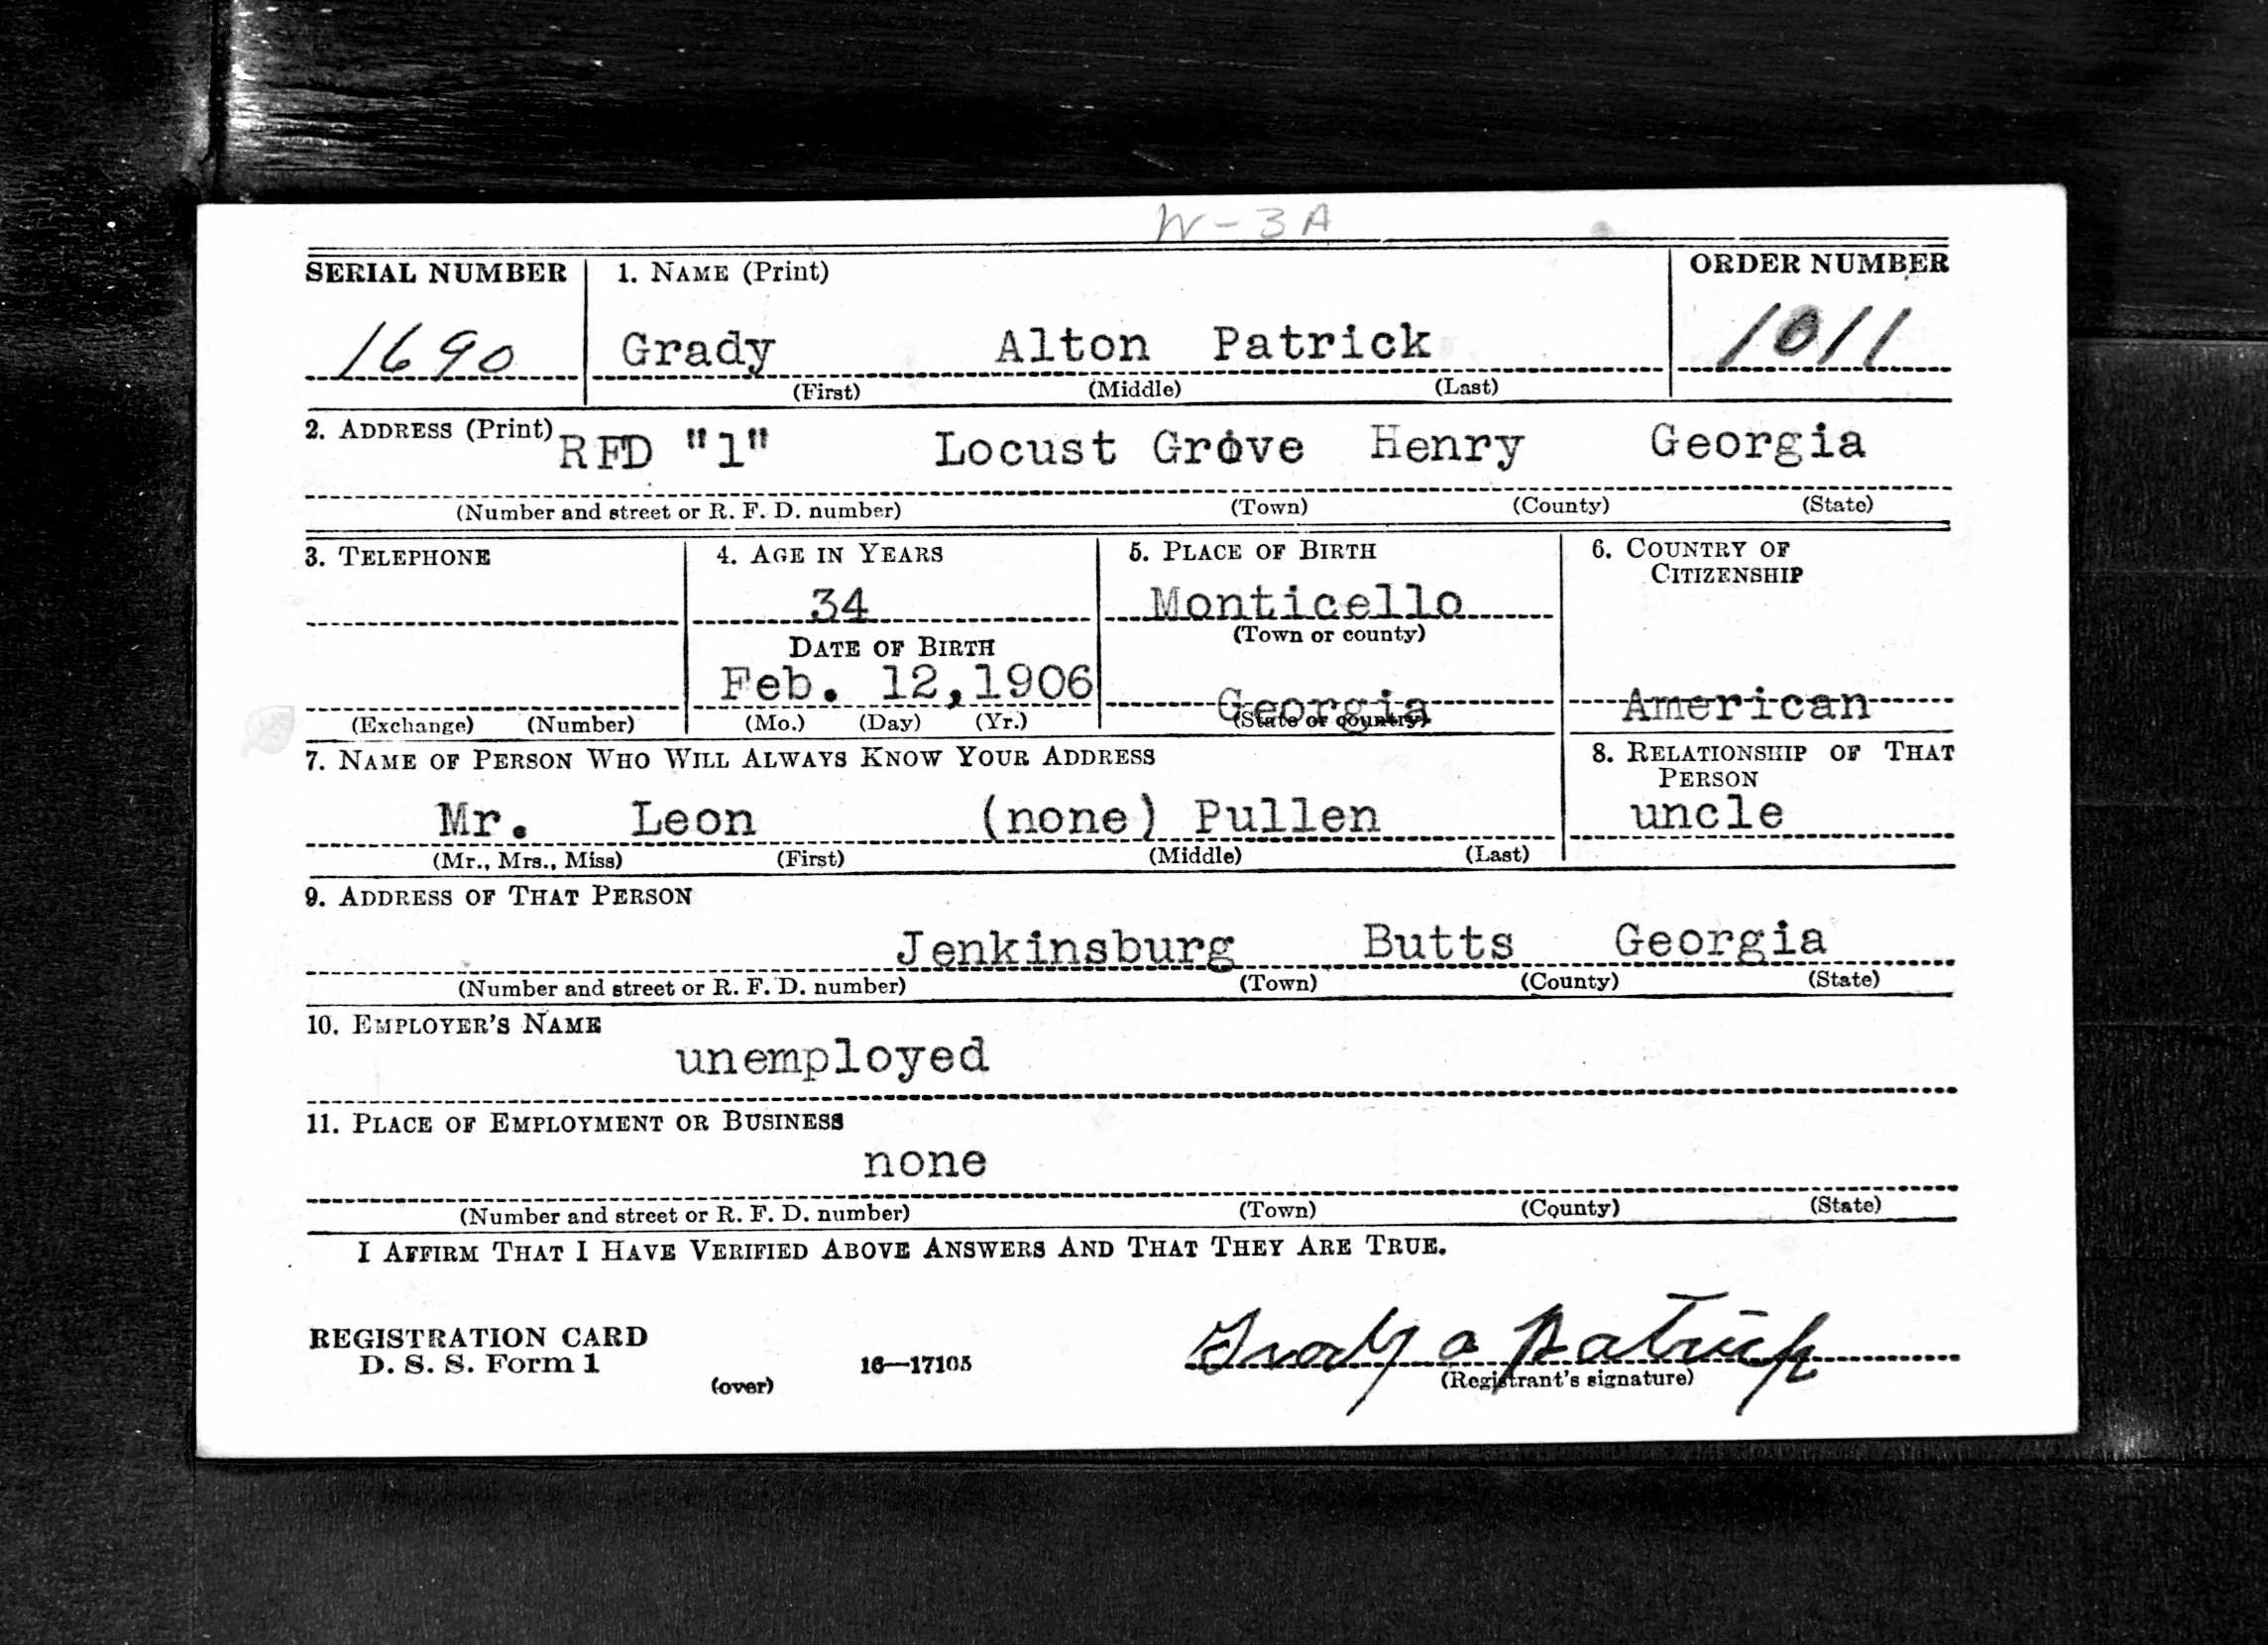 W-3A
SERIAL NUMBER 1. NAME (Print) ORDER NUMBER
1690 Grady Alton Patrick 1011
(First) (Middle) (Last)
2. ADDRESS (Print) RFD "1" Locust Grove Henry Georgia
(Number and street or R. F. D. number) (Town) (County) (State)
3. TELEPHONE 4. AGE IN YEARS 5. PLACE OF BIRTH 6. COUNTRY OF
CITIZENSHIP
34 Monticello
DATE OF BIRTH (Town or county)
Feb. 12,1906 Georgia American
(Exchange) (Number) (Mo.) (Day) (Yr.) (State or country)
7. NAME OF PERSON WHO WILL ALWAYS KNOW YOUR ADDRESS 8. RELATIONSHIP OF THAT
PERSON
Mr. Leon (none) Pullen uncle
(Mr., Mrs., Miss) (First) (Middle) (Last)
9. ADDRESS OF THAT PERSON
Jenkinsburg Butts Georgia
(Number and street or R. F. D. number) (Town) (County) (State)
10. EMPLOYER'S NAME
unemployed
11. PLACE OF EMPLOYMENT OR BUSINESS
none
(Number and street or R. F. D. number) (Town) (County) (State)
I AFFIRM THAT I HAVE VERIFIED ABOVE ANSWERS AND THAT THEY ARE TRUE.
REGISTRATION CARD
D. S. S. Form 1 16—17105 Grady a Patrick
(over) (Registrant's signature)